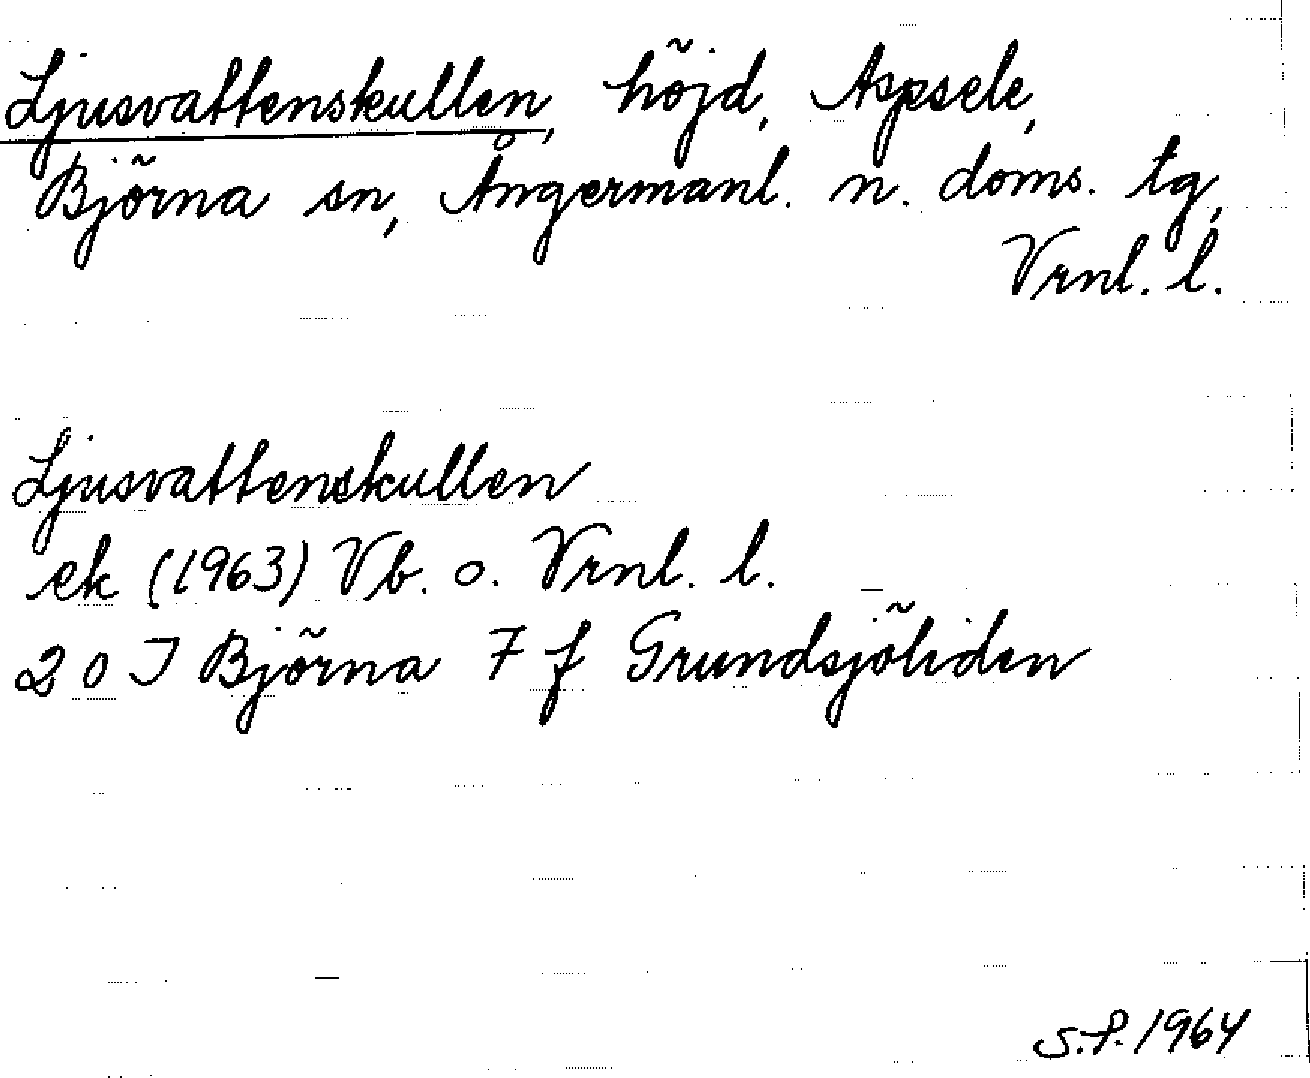 Ljusvattenskullen, höjd, Aspsele,
Björna sn, Ångermanl. n. doms. tg,
Vrnl. l.
Ljusvattenskullen
ek (1963) Vb. o. Vrnl. l.
20 J Björna 7 f Grundsjöliden
S.P. 1964